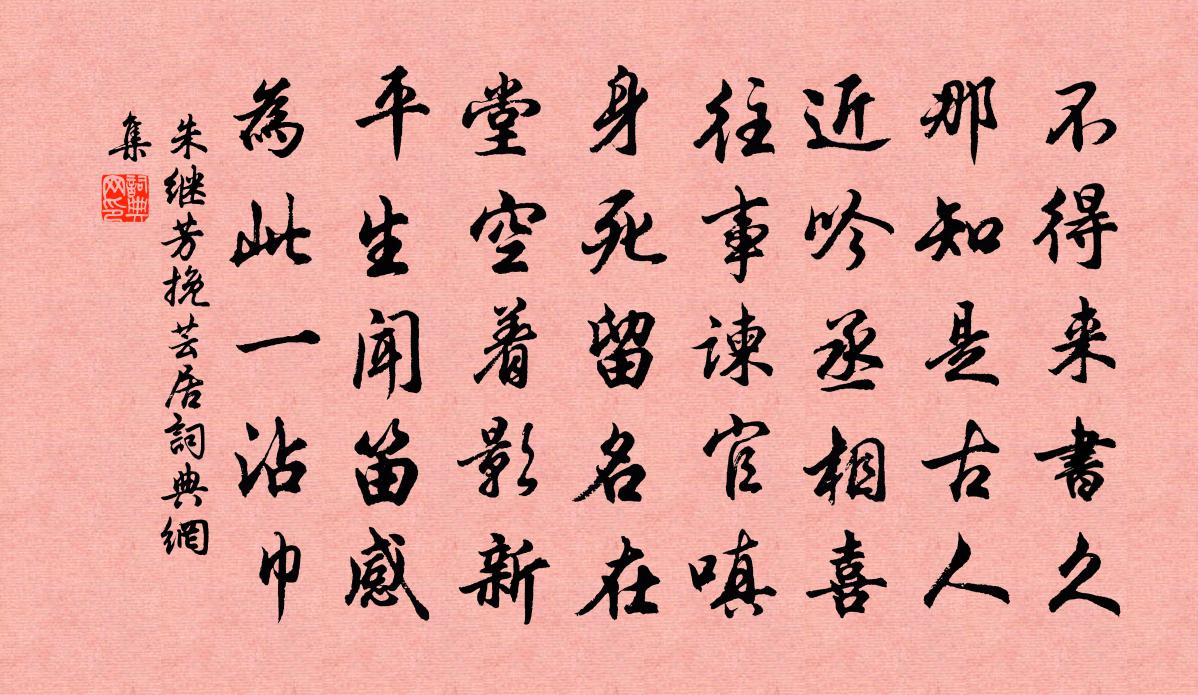 不得来書久
那知是古人
近吟丞相喜
往事諫官嗔
身死留名在
堂空着影新
平生聞笛感
為此一沾巾
朱继芳挽芸居詞典網
集
詞典
网印